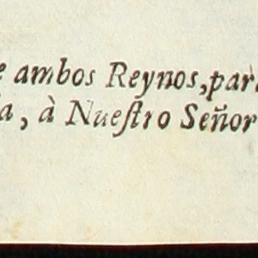 e ambos Reynos, para
a, à Nueſtro Señor